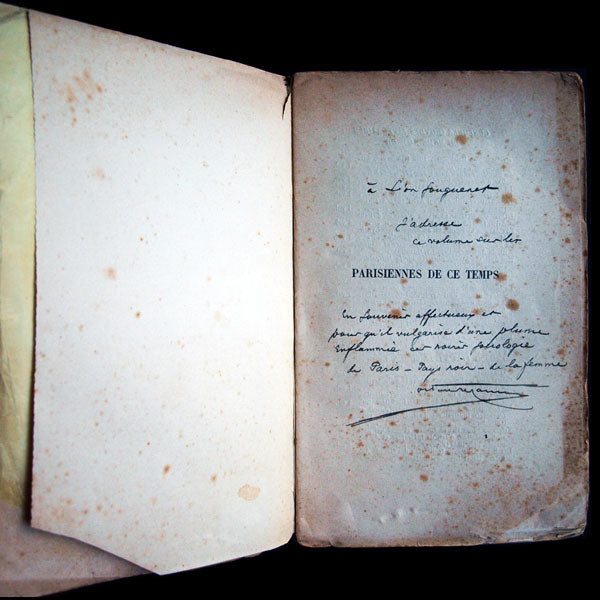 à Léon Fouquenet
J'adresse
ce volume sur les
PARISIENNES DE CE TEMPS
En souvenir affectueux et
pour qu'il vulgarise d'une plume
Enflammée
de Paris - Pays noir - de la femme